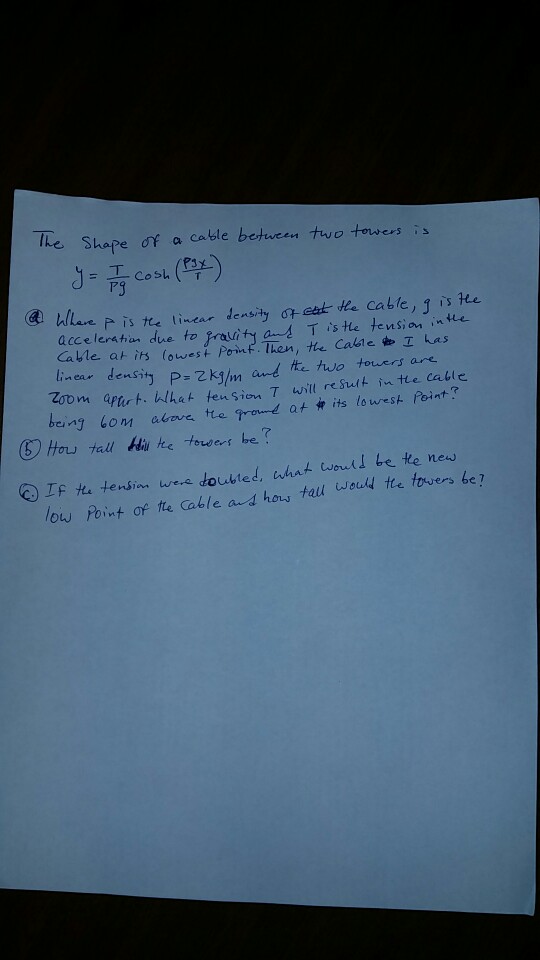 The Shape of a cable between two towers is
y = T/ρg cosh (ρgx/T)
(a) Where ρ is the linear density of the cable, g is the
acceleration due to gravity and T is the tension in the
Cable at its lowest Point. Then, the Cable I has
linear density ρ = 2kg/m and the two towers are
200m appart. What tension T will result in the cable
being 60m above the ground at its lowest Point?
(b) How tall will the towers be?
(c.) IF the tension were doubled, what would be the new
low Point of the Cable and how tall would the towers be?